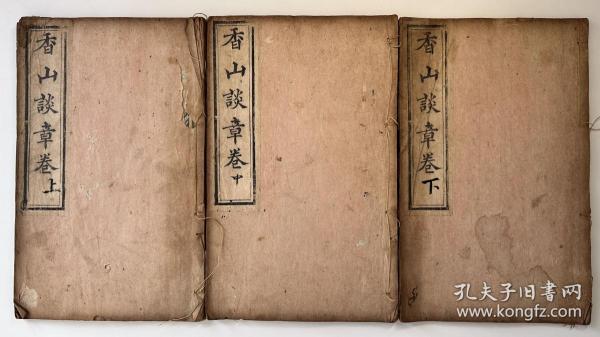 香山談章卷上
香山談章卷中
香山談章卷下
孔夫子旧書网
www.kongfz.com